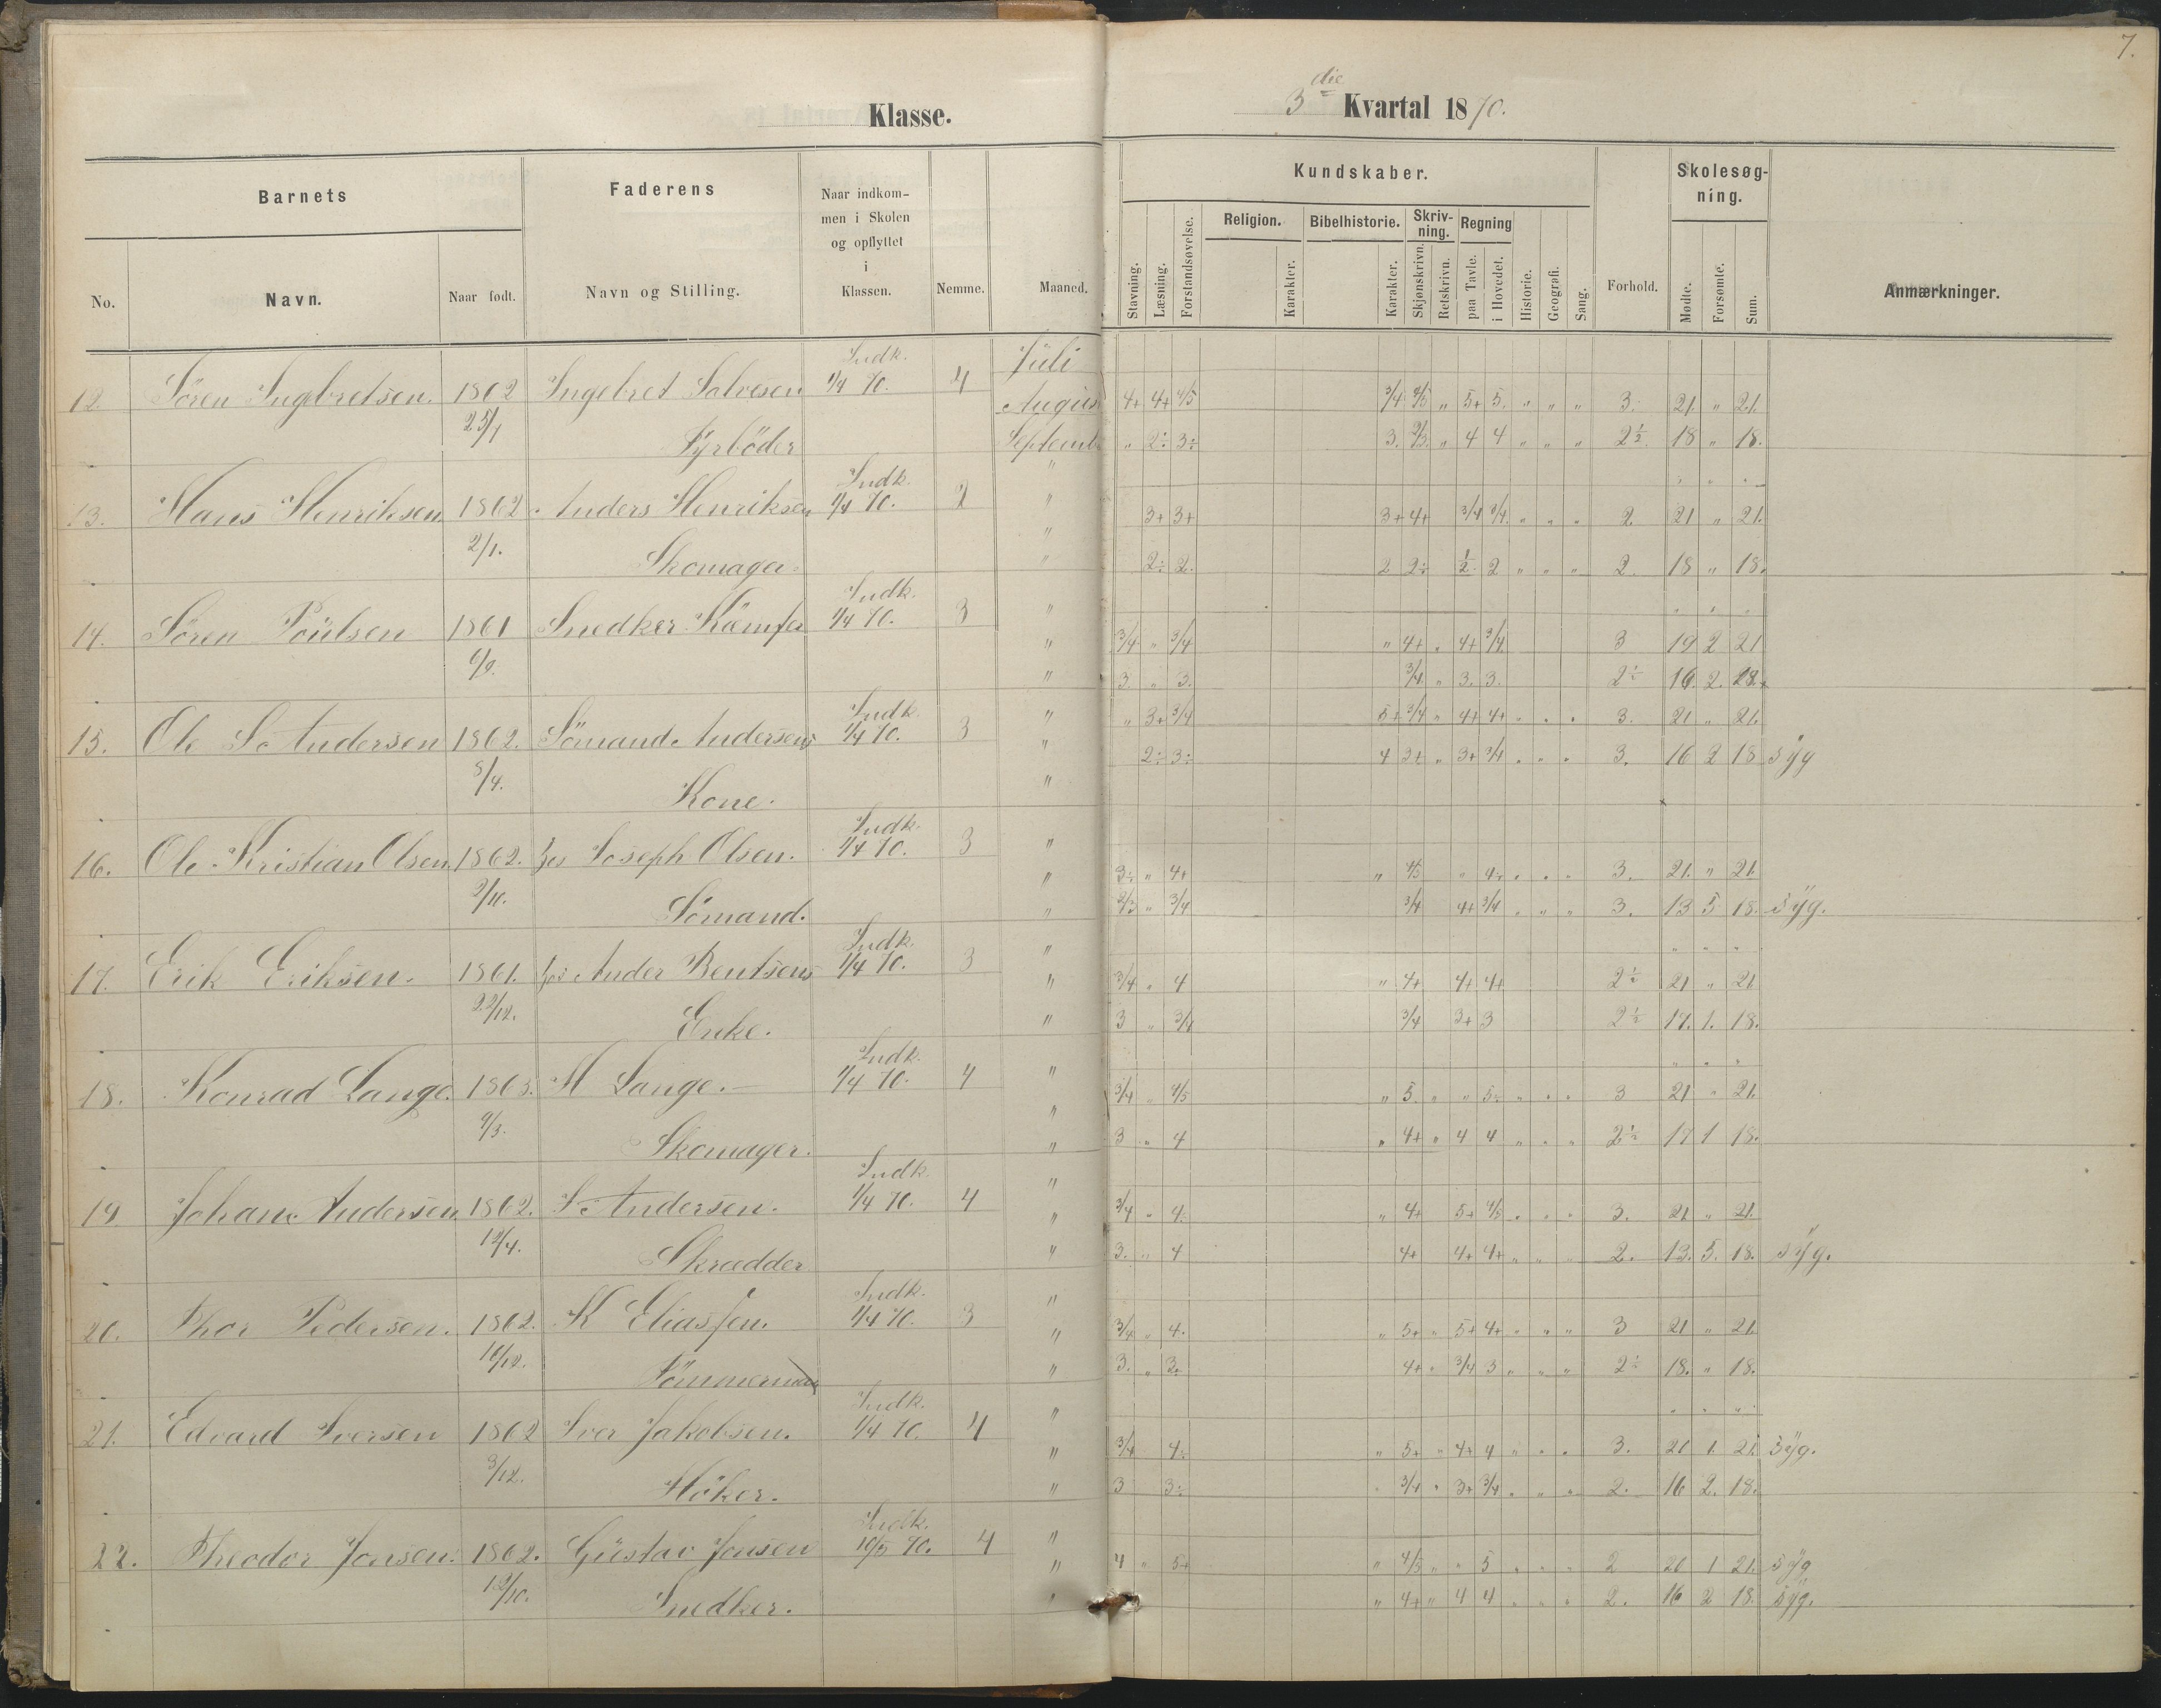 7.
Klasse.
3die Kvartal 1870.
Barnets
Faderens
Naar indkom-
men i Skolen
og opflyttet
i
Klassen.
Nemme.
Maaned.
No.
Navn.
Naar født.
Navn og Stilling.
Kundskaber.
Skolesøg-
ning.
Stavning.
Læsning.
Forstandsøvelse.
Religion.
Karakter.
Bibelhistorie.
Karakter.
Skriv-
ning.
Skjønskrivn.
Retskrivn.
Regning
paa Tavle.
i Hovedet.
Historie.
Geografi.
Sang.
Forhold.
Mødte.
Forsømte.
Sum.
Anmærkninger.
Indk. Juli
12. Sören Ingbretsen. 1862 Ingebret Salvesen 1/4 70. 4 August 4+ 4+ 4/5 3/4 4/5 " 5+ 5. " " " 3. 21. " 21.
Fyrböder Septemb. " 2÷ 3÷ 3. 2/3. " 4 4 " " " 2½. 18 " 18.
Indk.
13. Hans Henriksen 1862 Anders Henriksen 1/4 70. 2 " 3+ 3+ 3+ 4+ 3/4 3/4 " " " 2. 21 " 21.
2/1. Skomager. " 2÷ 2. 2 2÷ ½ 2 " " " 2. 18 " 18.
Indk.
14. Sören Poulsen 1861 Snedker Kæmfer 1/4 70. 3 " 3/4 " 3/4 " 4+ " 4+ 3/4 3 19 2 21
" 3. " 3. 3/4. " 3. 3. 16. 2. 18.
Indk.
15. Ole So Andersen 1862. Sömand Andersens 1/4 70. 3 " " 3+ 3/4 5+ 3/4 " 4+ 4+ " " " 3. 21 " 21.
5/4. Kone. " 2÷ 3÷ 4 3+ " 3+ 3/4 " " " 3. 16 2 18 syg
Indk.
16. Ole Kristian Olsen. 1862. hos Joseph Olsen. 1/4 70. 3 " 3÷ " 4+ " 4/5 " 4÷ " " " 3. 21. " 21.
2/10. Sömand. " 2/3 " 3/4 3/4 4+ 3/4 " " " 3. 13 5 18. syg.
Indk.
17. Erik Eriksen. 1861. hos Ander Bentsens 1/4 70. 3 " 3/4 " 4 " 4+ 4+ 4+ 21 " 21
22/12. Enke. " 3 " 3/4 3/4 3+ 3 17. 1. 18.
Indk.
18. Konrad Lange. 1863. M Lange. 1/4 70. 4 " 3/4 " 4/5 " 5. " " 5÷ " " " 3 21 " 21.
4/3. Skomager. " 3 " 4 " 4+ " 4 4 " " " 17 1 18.
Indk.
19 Johan Andersen 1862. Andersen. 1/4 70. 4 " 3/4 " 4. " 4+ 5+ 4/5 " " " 3. 21 " 21.
12/4. Skrædder " 3. " 4 4+ 4+ 4+ " " " 2. 13. 5. 18. syg.
Indk.
20. Thor Pedersen. 1862. K Eliassen. 1/4 70. 3 " 3/4 " 4. " 5+ " 5+ 4+ " " " 3 21 " 21.
10/12. Tömmermand " 3. " 3÷ 4+ " 3/4 3 " " " 18. " 18.
Indk.
21. Edvard Iversen 1862 Iver Jakobsen. 1/4 70. 4 " 3/4 4÷ " 5+ " 4+ 4 " " " 3. 20 1. 21. syg.
3/12. Höker. " 3 3÷ " 3/4 " 3+ 3/4 " " " 2. 16 2. 18.
Indk.
22. Theodor Jonsen. 1862. Gustav Jonsen 10/5 70. 4 " 4 " 5+ " 4/5 " " 5 " " " 2 20 1 21. syg
12/10. Snedker. " " 4+ " 4 4 " " " 2. 16 2 18. syg.